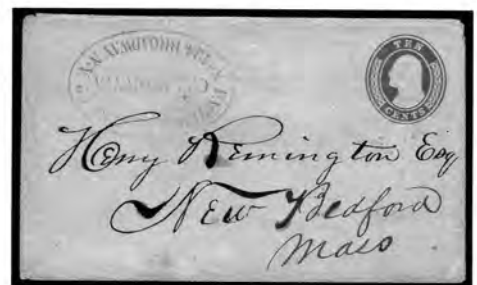 TEN
CENTS
Henry Remington Esq
New Bedford
Mass